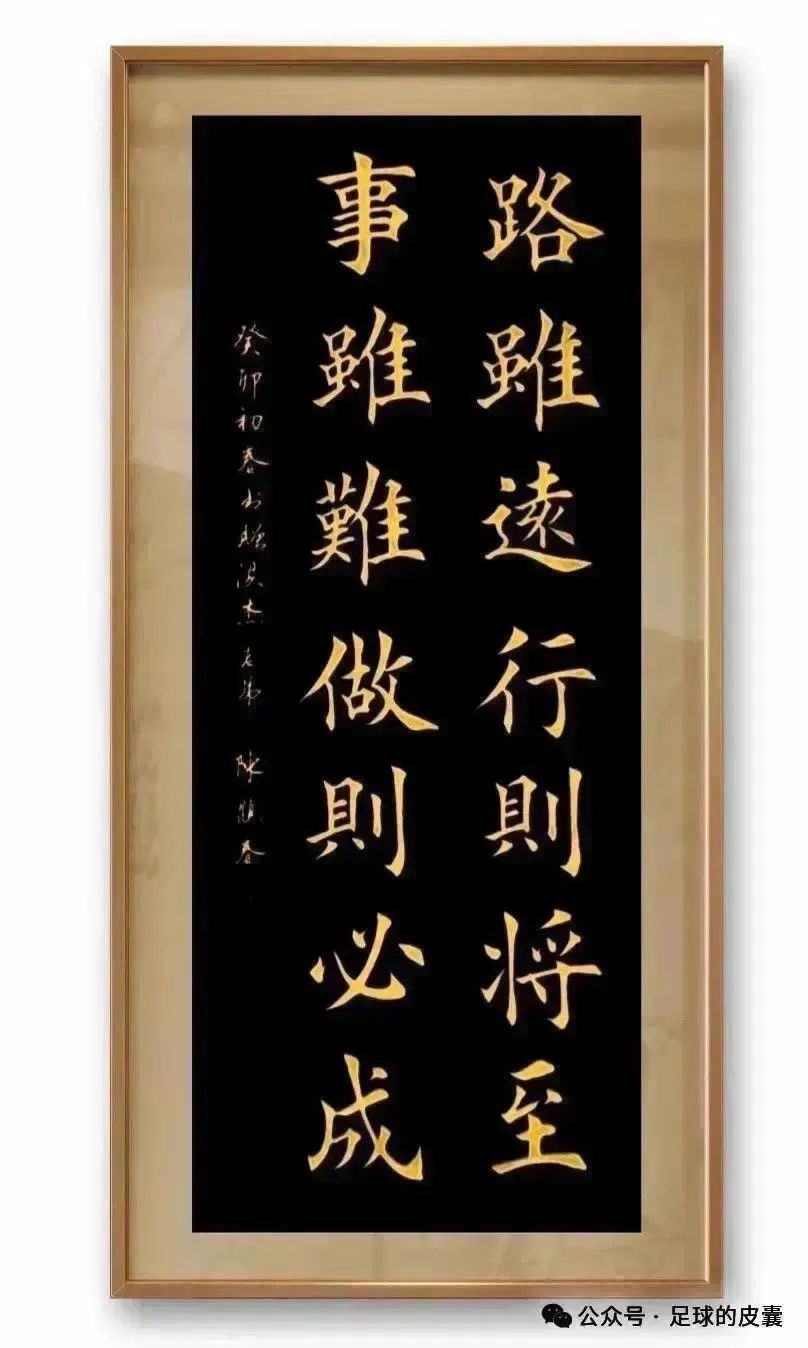 路雖遠行則将至
事雖難做則必成
癸卯初春书赠淏杰老师 陳順春
公众号 · 足球的皮囊